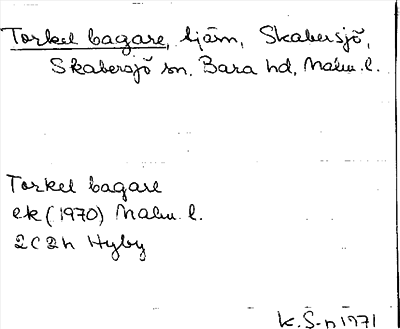 Torkel bagare, tjärn, Skabersjö,
Skabersjö sn. Bara hd, Malm. l.
Torkel bagare
ek (1970) Malm. l.
2C2h Hyby
K.S-n 1971